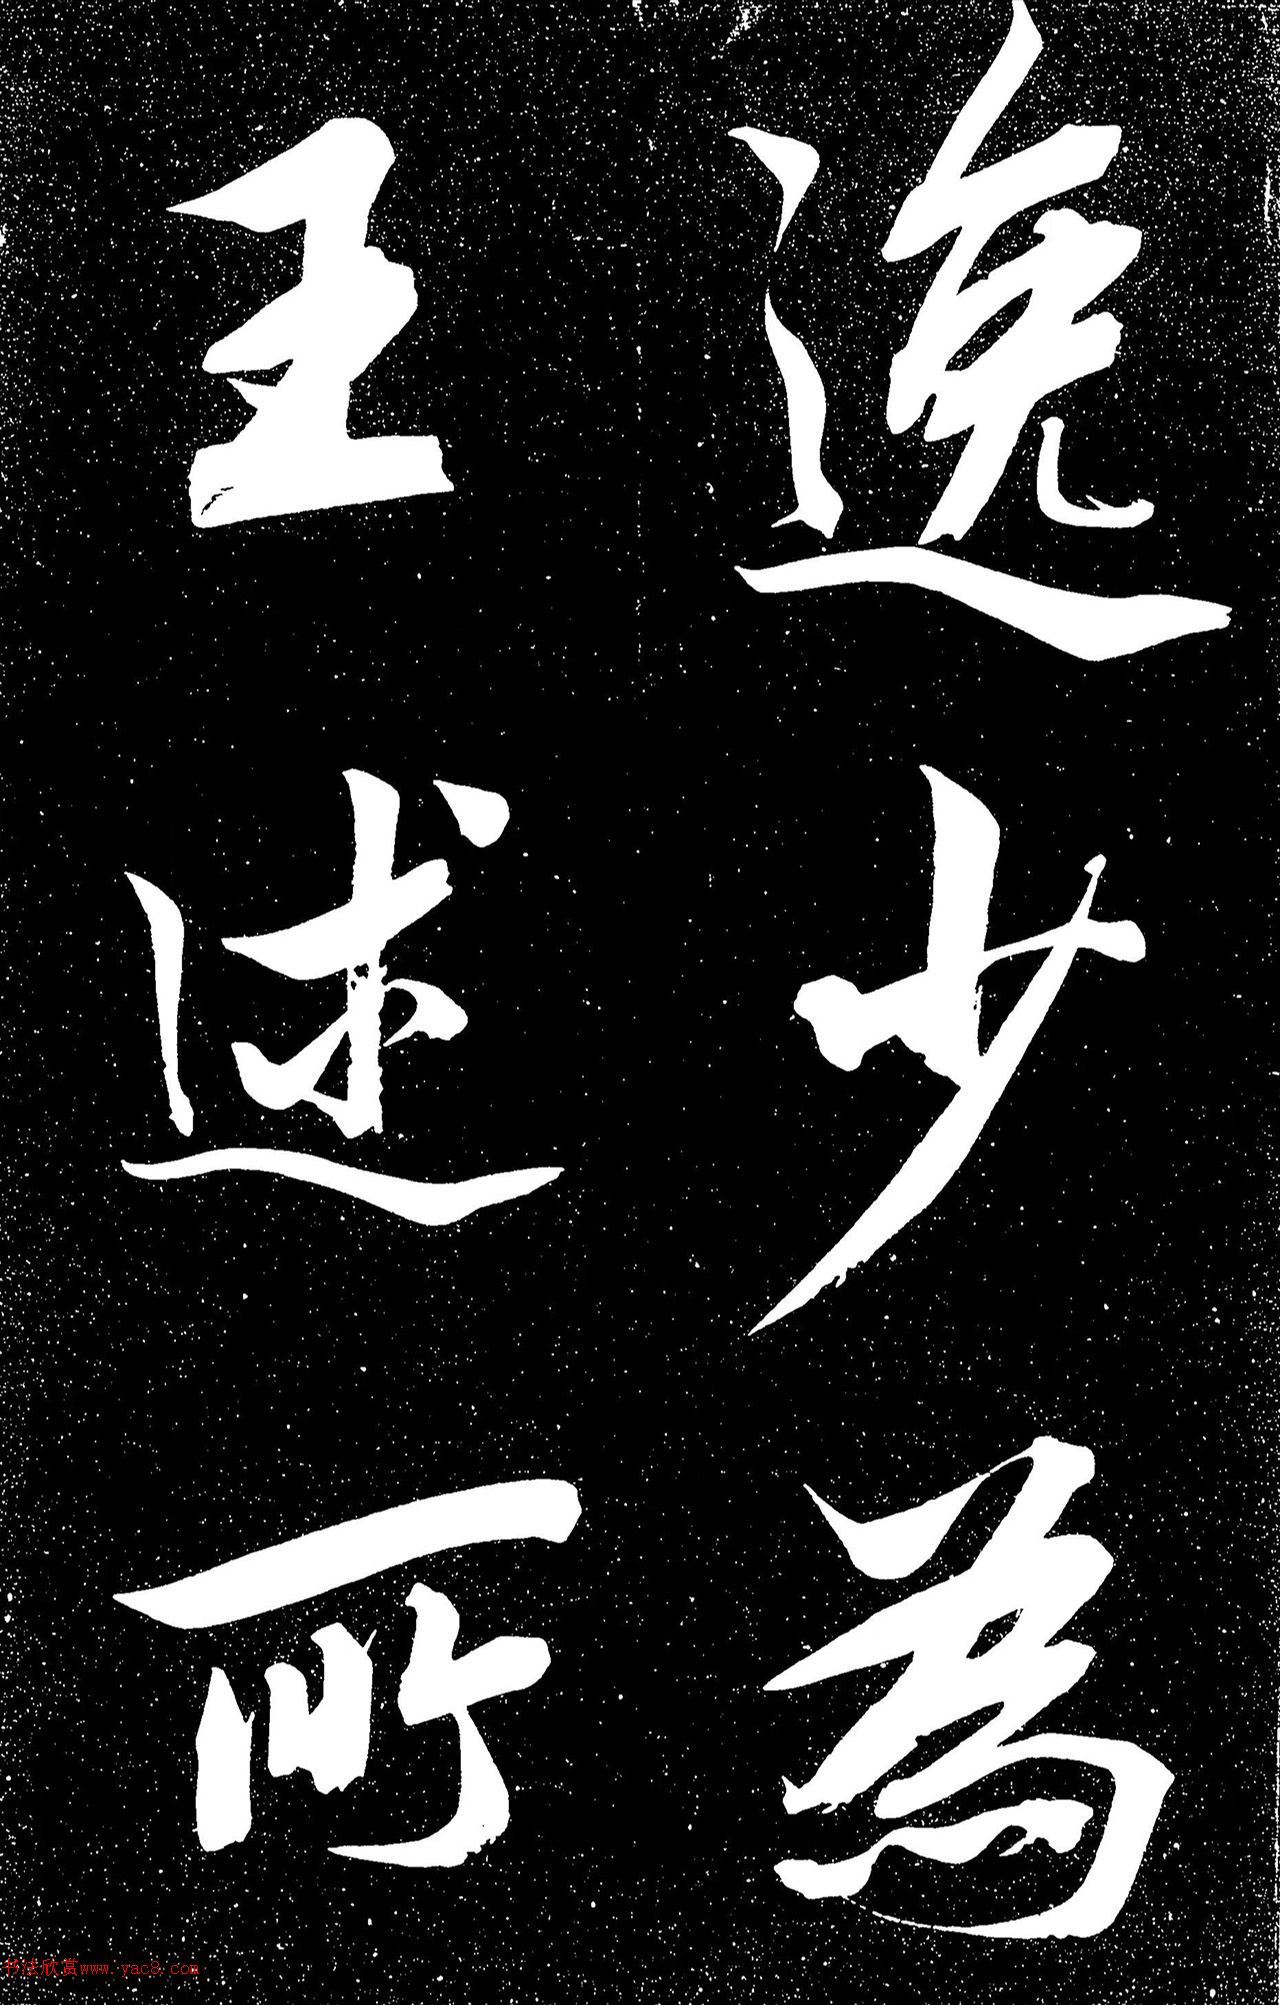 逸少為
王述所
书法欣赏www.yac8.com